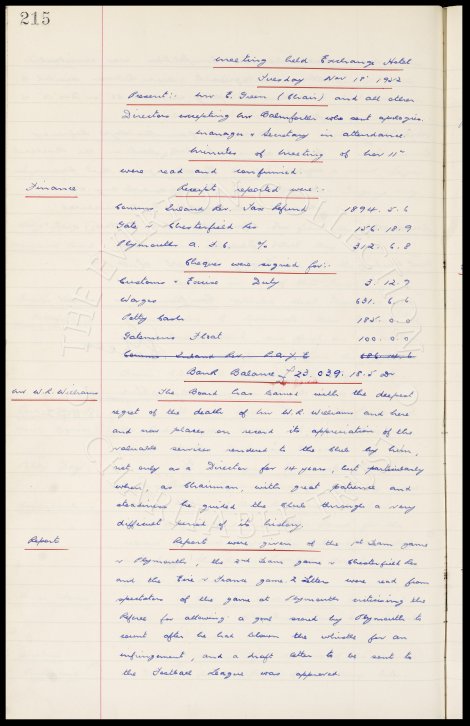 215
Meeting held Exchange Hotel
Tuesday Nov 18th 1952
Present:- Mr E. Green (Chair) and all other
Directors excepting Mr Balmforth who sent apologies.
Manager & Secretary in attendance.
Minutes of meeting of Nov 11th
were read and confirmed.
Finance
Receipts reported were:-
Comms. Inland Rev. Tax Refund 1894. 5. 6
Gate v Chesterfield Res 156. 18. 9
Plymouth A. F. C. % 312. 6. 8
Cheques were signed for:-
Customs & Excise Duty 3. 12. 9
Wages 631. 6. 6
Petty Cash 185. 0. 0
Gatemens Float 100. 0. 0
Comms Inland Rev. P.A.Y.E
Bank Balance £23,039. 18. 5 Dr
Mr W. R. Williams
The Board has learned with the deepest
regret of the death of Mr W. R. Williams and here
and now places on record its appreciation of the
valuable services rendered to the Club by him,
not only as a Director for 14 years, but particularly
when, as Chairman, with great patience and
steadiness he guided the Club through a very
difficult period of its history.
Reports
Reports were given of the 1st Team game
v Plymouth, the 2nd Team game v Chesterfield Res
and the game 2 Letters were read from
spectators of the game at Plymouth criticising the
Referee for allowing a goal scored by Plymouth to
count after he had blown the whistle for an
infringement, and a draft letter to be sent to
the Football League was approved.